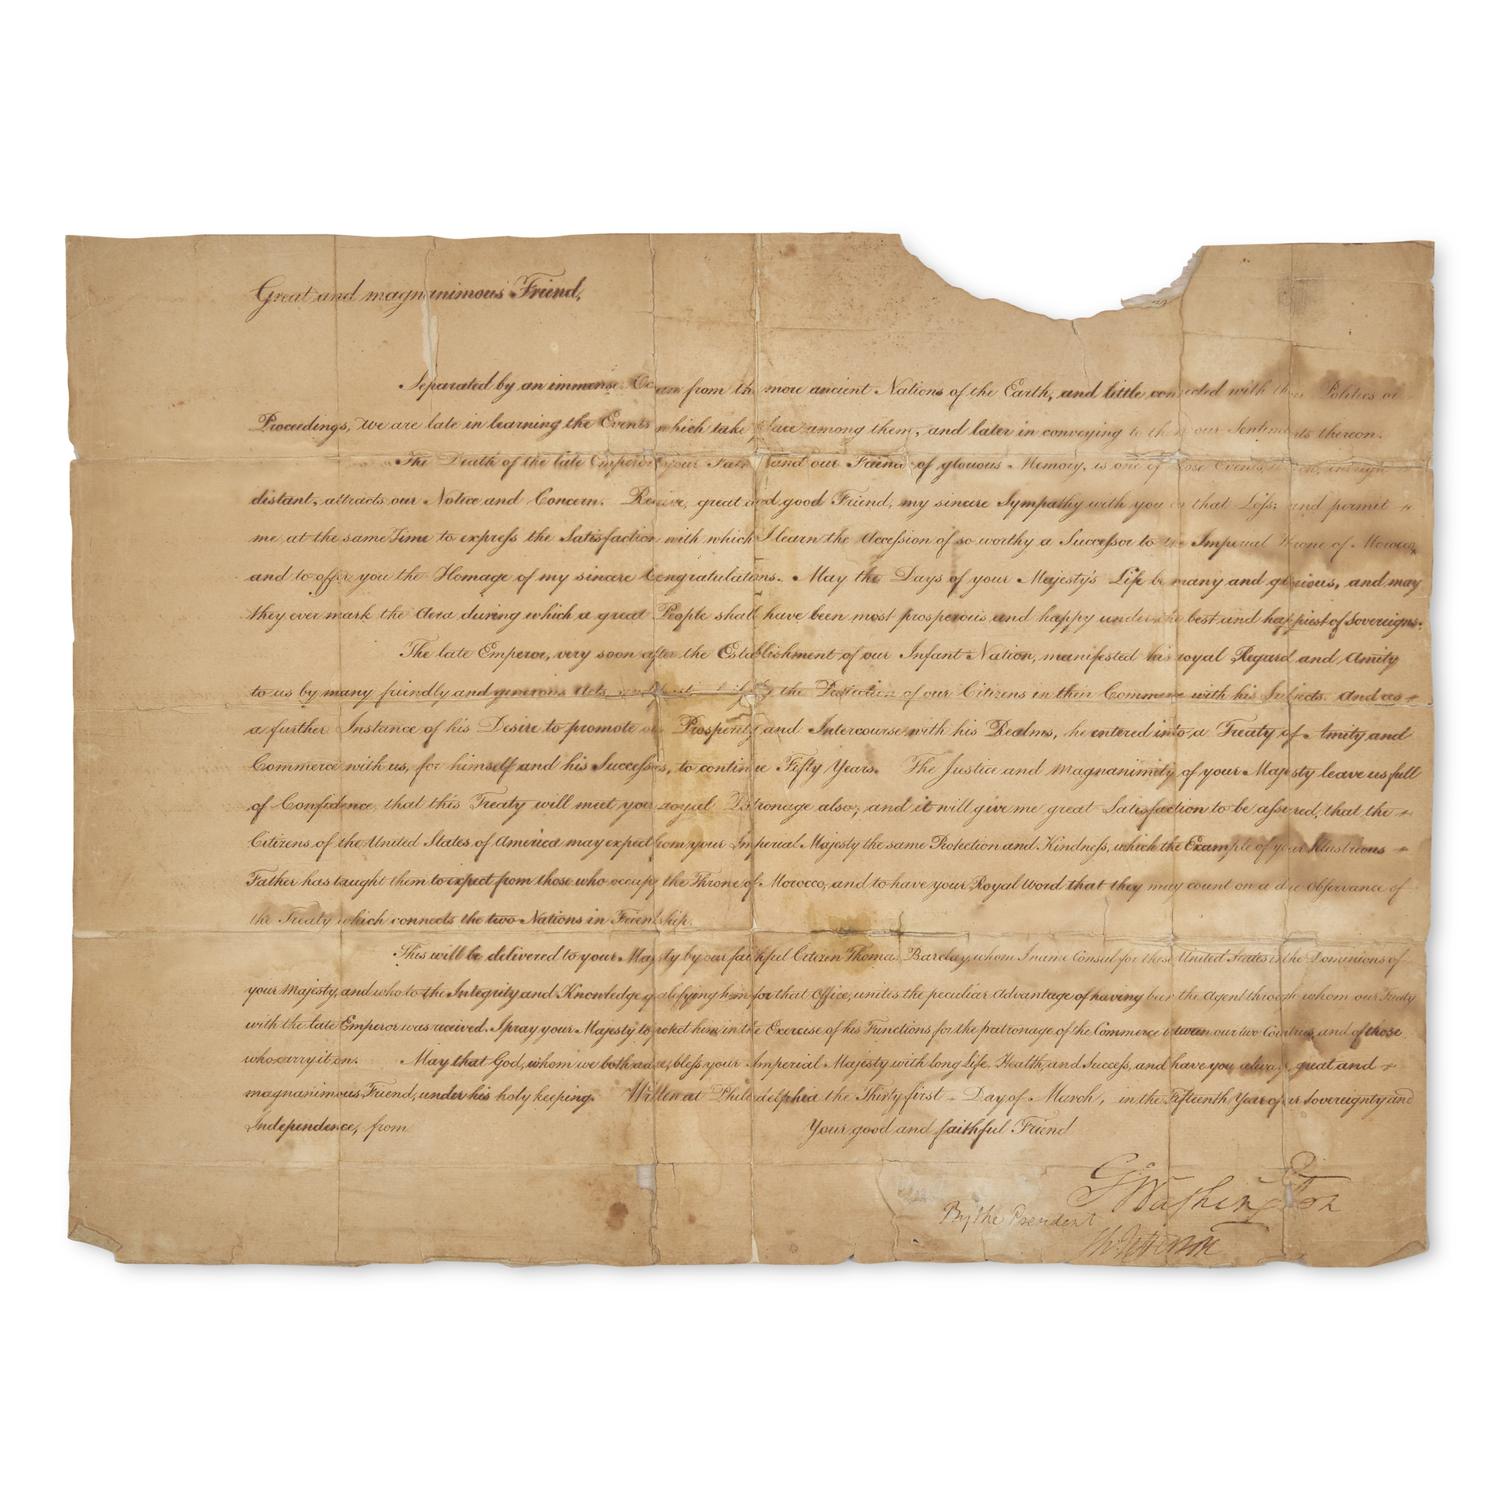 Great and magnanimous Friend,
Separated by an immense Ocean from the more ancient Nations of the Earth, and little connected with their Politics or
Proceedings, we are late in learning the Events which take place among them, and later in conveying to them our Sentiments thereon.
The Death of the late Emperor your Father and our Friend of glorious Memory, is one of those Events, which, tho'
distant, attracts our Notice and Concern. Receive, great and good Friend, my sincere Sympathy with you on that Loss; and permit
me at the same Time to express the Satisfaction with which I learn the Accession of so worthy a Successor to the Imperial Throne of Morocco,
and to offer you the Homage of my sincere Congratulations. May the Days of your Majesty's Life be many and glorious, and may
they ever mark the Aera during which a great People shall have been most prosperous and happy under the best and happiest of Sovereigns.
The late Emperor, very soon after the Establishment of our Infant Nation, manifested his royal Regard and Amity
to us by many friendly and generous Acts, and the Protection of our Citizens in their Commerce with his Subjects. And as
a further Instance of his Desire to promote our Prosperity and Intercourse with his Realms, he entered into a Treaty of Amity and
Commerce with us, for himself and his Successors, to continue Fifty Years. The Justice and Magnanimity of your Majesty leave us full
of Confidence, that this Treaty will meet your royal Patronage also; and it will give me great Satisfaction to be assured, that the
Citizens of the United States of America may expect from your Imperial Majesty the same Protection and Kindness, which the Example of your Illustrious
Father has taught them to expect from those who occupy the Throne of Morocco, and to have your Royal Word that they may count on a due Observance of
the Treaty which connects the two Nations in Friendship.
This will be delivered to your Majesty by our faithful Citizen Thomas Barclay, whom I name Consul for these United States in the Dominions of
your Majesty, and who to the Integrity and Knowledge qualifying him for that Office, unites the peculiar Advantage of having been the Agent through whom our Treaty
with the late Emperor was received. I pray your Majesty to protect him in the Exercise of his Functions for the patronage of the Commerce between our two Countries, and of those
who carry it on. May that God, whom we both adore, bless your Imperial Majesty with long Life, Health, and Success, and have you always, great and
magnanimous Friend, under his holy keeping. Written at Philadelphia the Thirty first Day of March, in the Fifteenth Year of our Sovereignty and
Independence, from
Your good and faithful Friend
G. Washington
By the President
Th: Jefferson